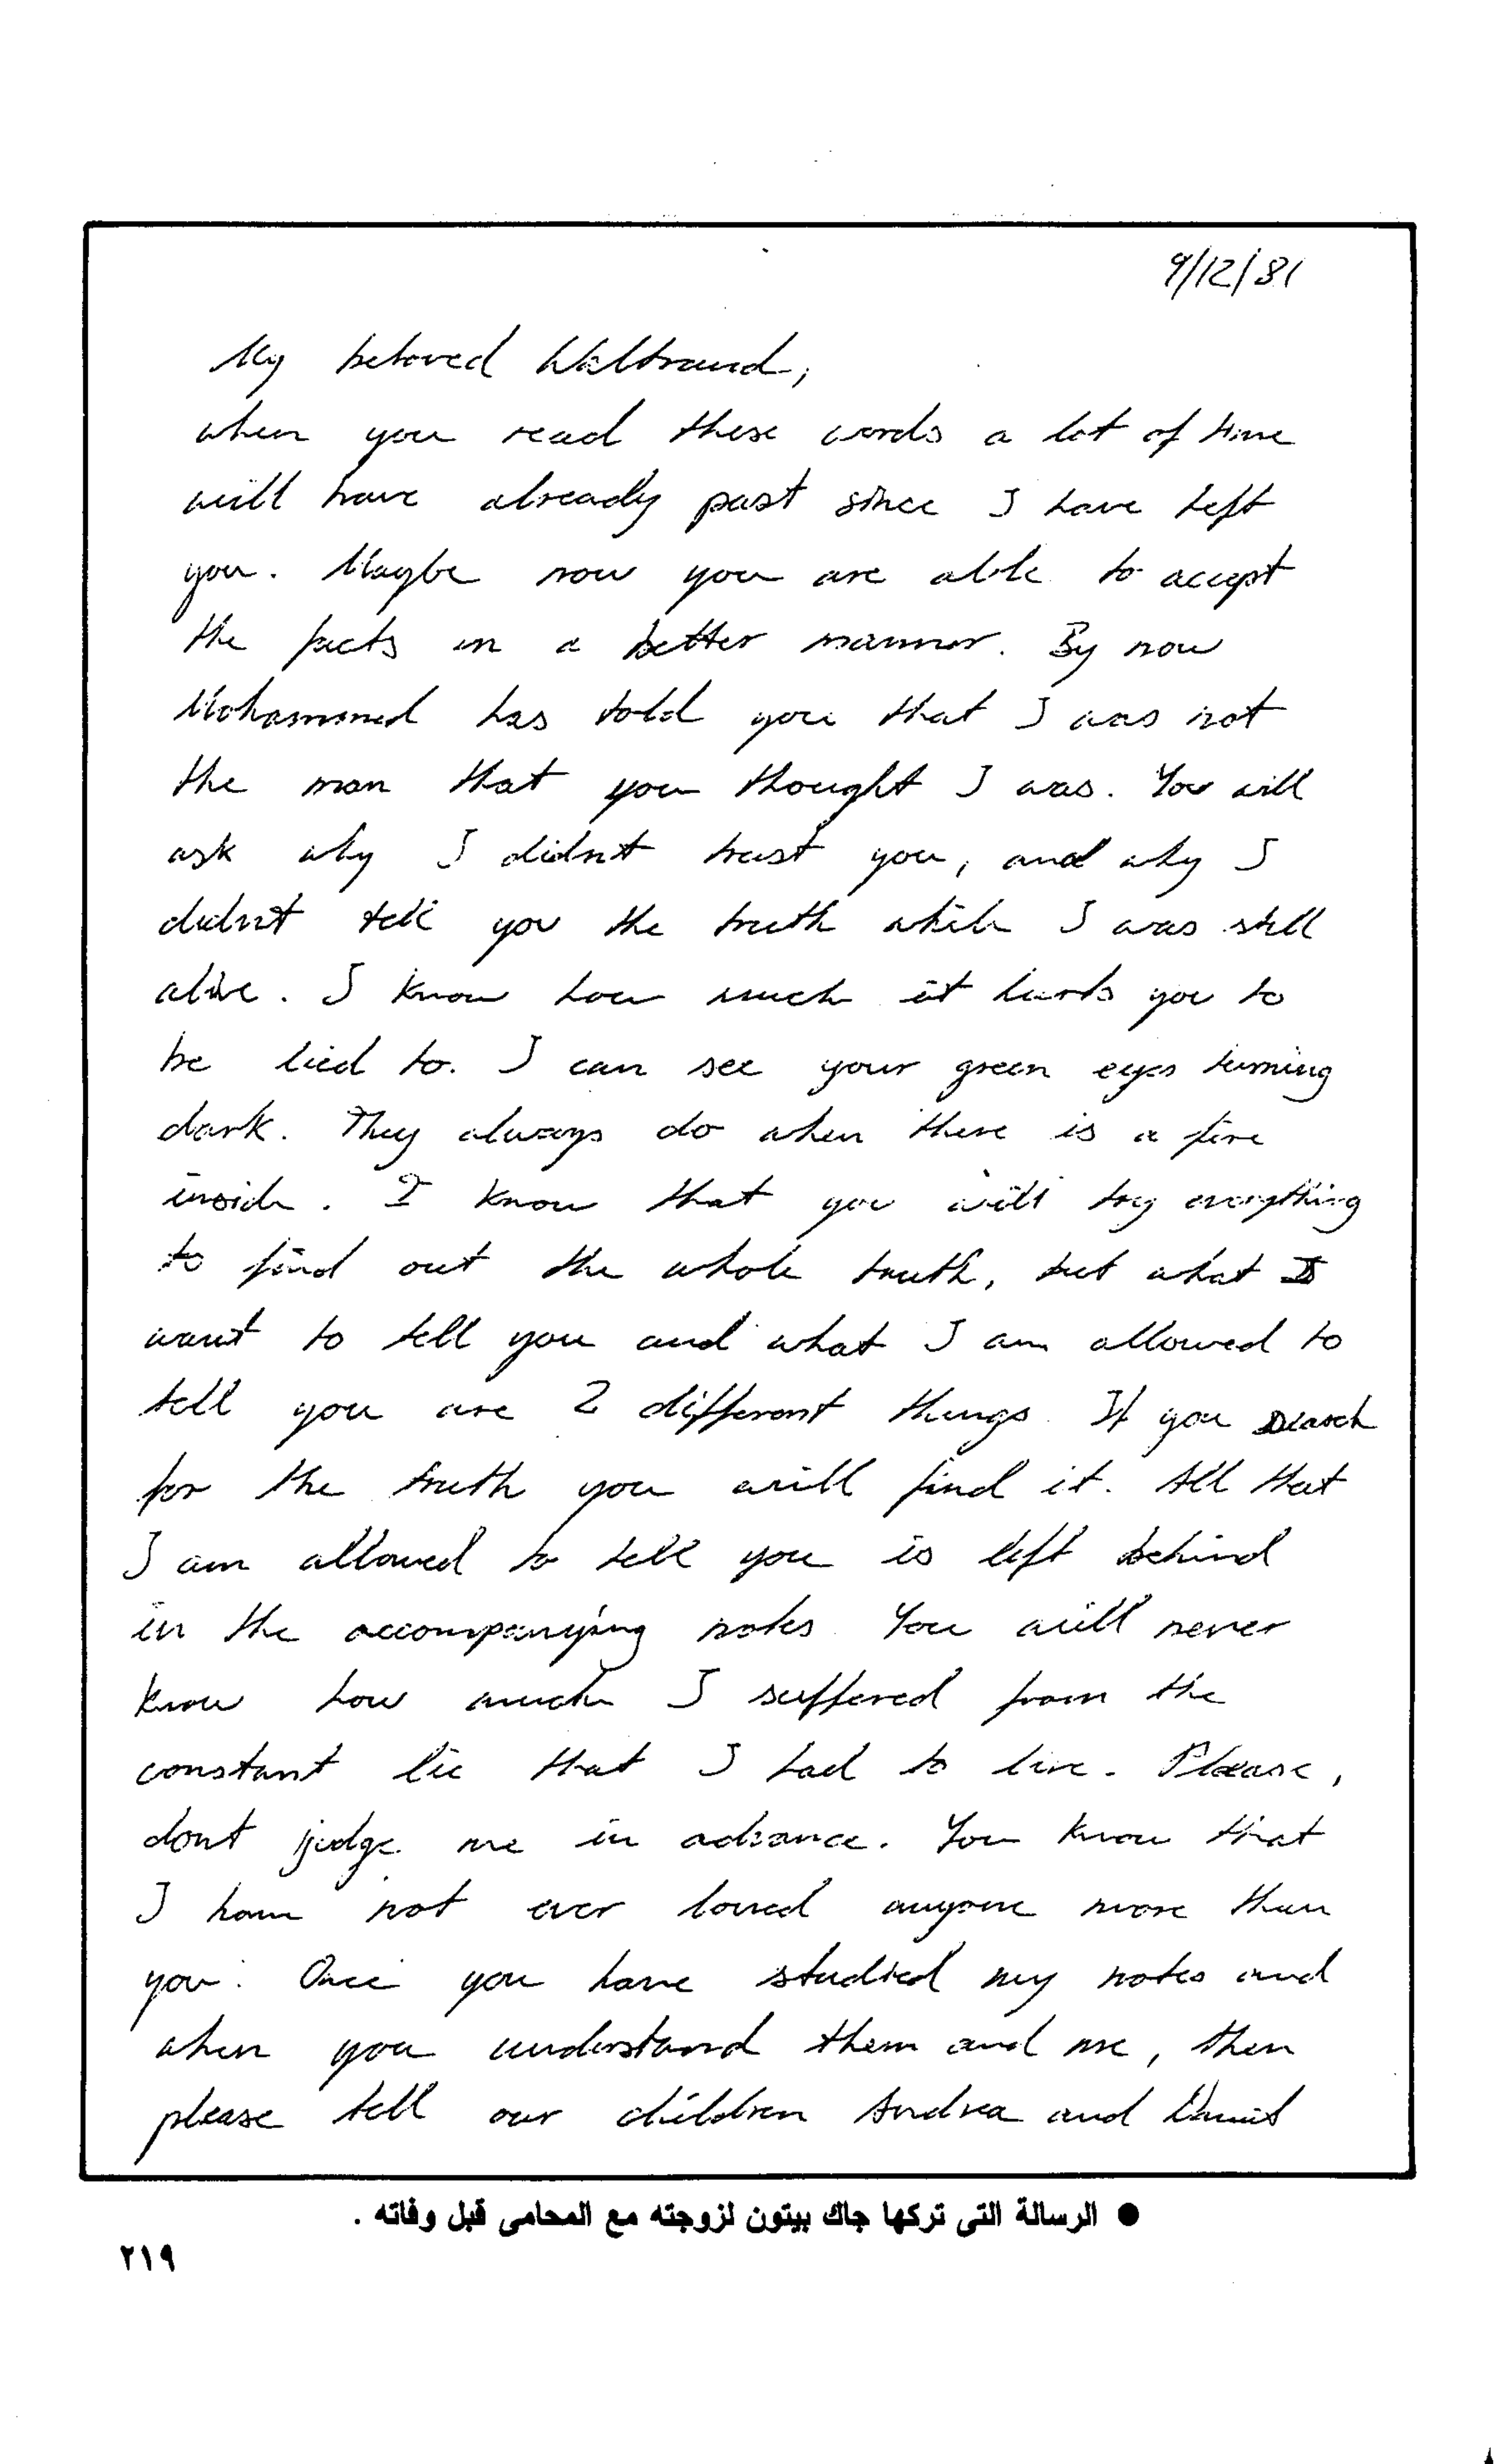 9/12/81
My beloved Waltraud,
when you read these words a lot of time
will have already past since I have left
you. Maybe now you are able to accept
the facts in a better manner. By now
Mohammed has told you that I was not
the man that you thought I was. You will
ask why I didn't trust you, and why I
didn't tell you the truth while I was still
alive. I know how much it hurts you to
be lied to. I can see your green eyes turning
dark. They always do when there is a fire
inside. I know that you will try everything
to find out the whole truth, but what I
want to tell you and what I am allowed to
tell you are 2 different things. If you search
for the truth you will find it. All that
I am allowed to tell you is left behind
in the accompanying notes. You will never
know how much I suffered from the
constant lie that I had to live. Please,
dont judge me in advance. You know that
I have not ever loved anyone more than
you. Once you have studied my notes and
when you understand them and me, then
please tell our children Andrea and Daniel
● الرسالة التى تركها جاك بيتون لزوجته مع المحامى قبل وفاته .
٢١٩